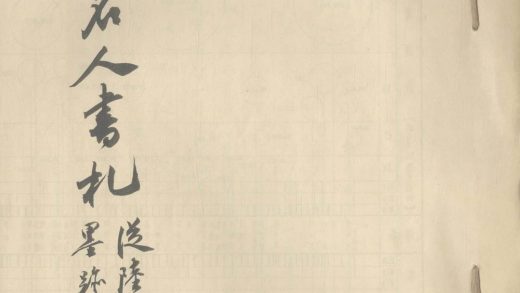 名人書札
從陸
墨跡